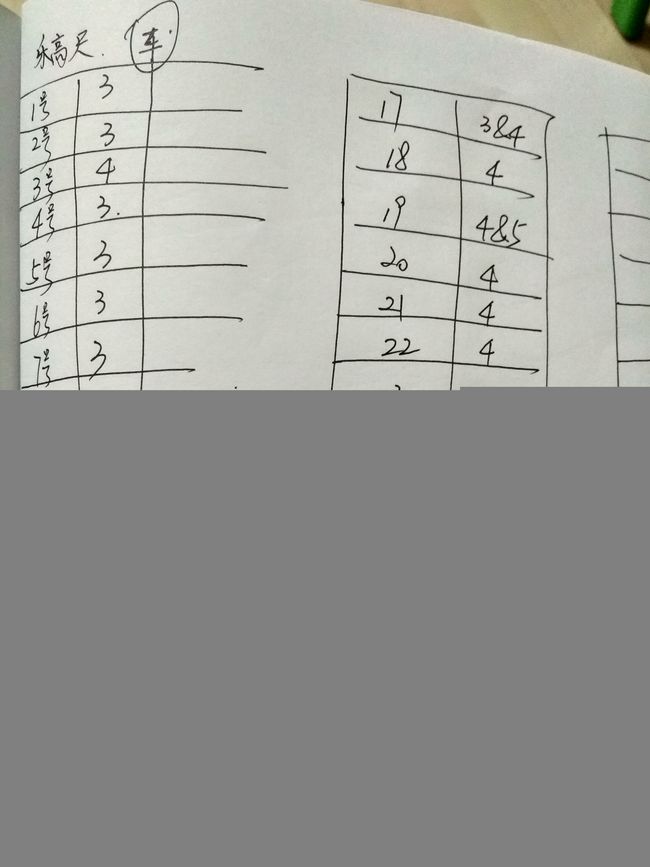 乐高尺. 车
1号 3
2号 3
3号 4
4号 3.
5号 3
6号 3
7号 3
17 3&4
18 4
19 4&5
20 4
21 4
22 4